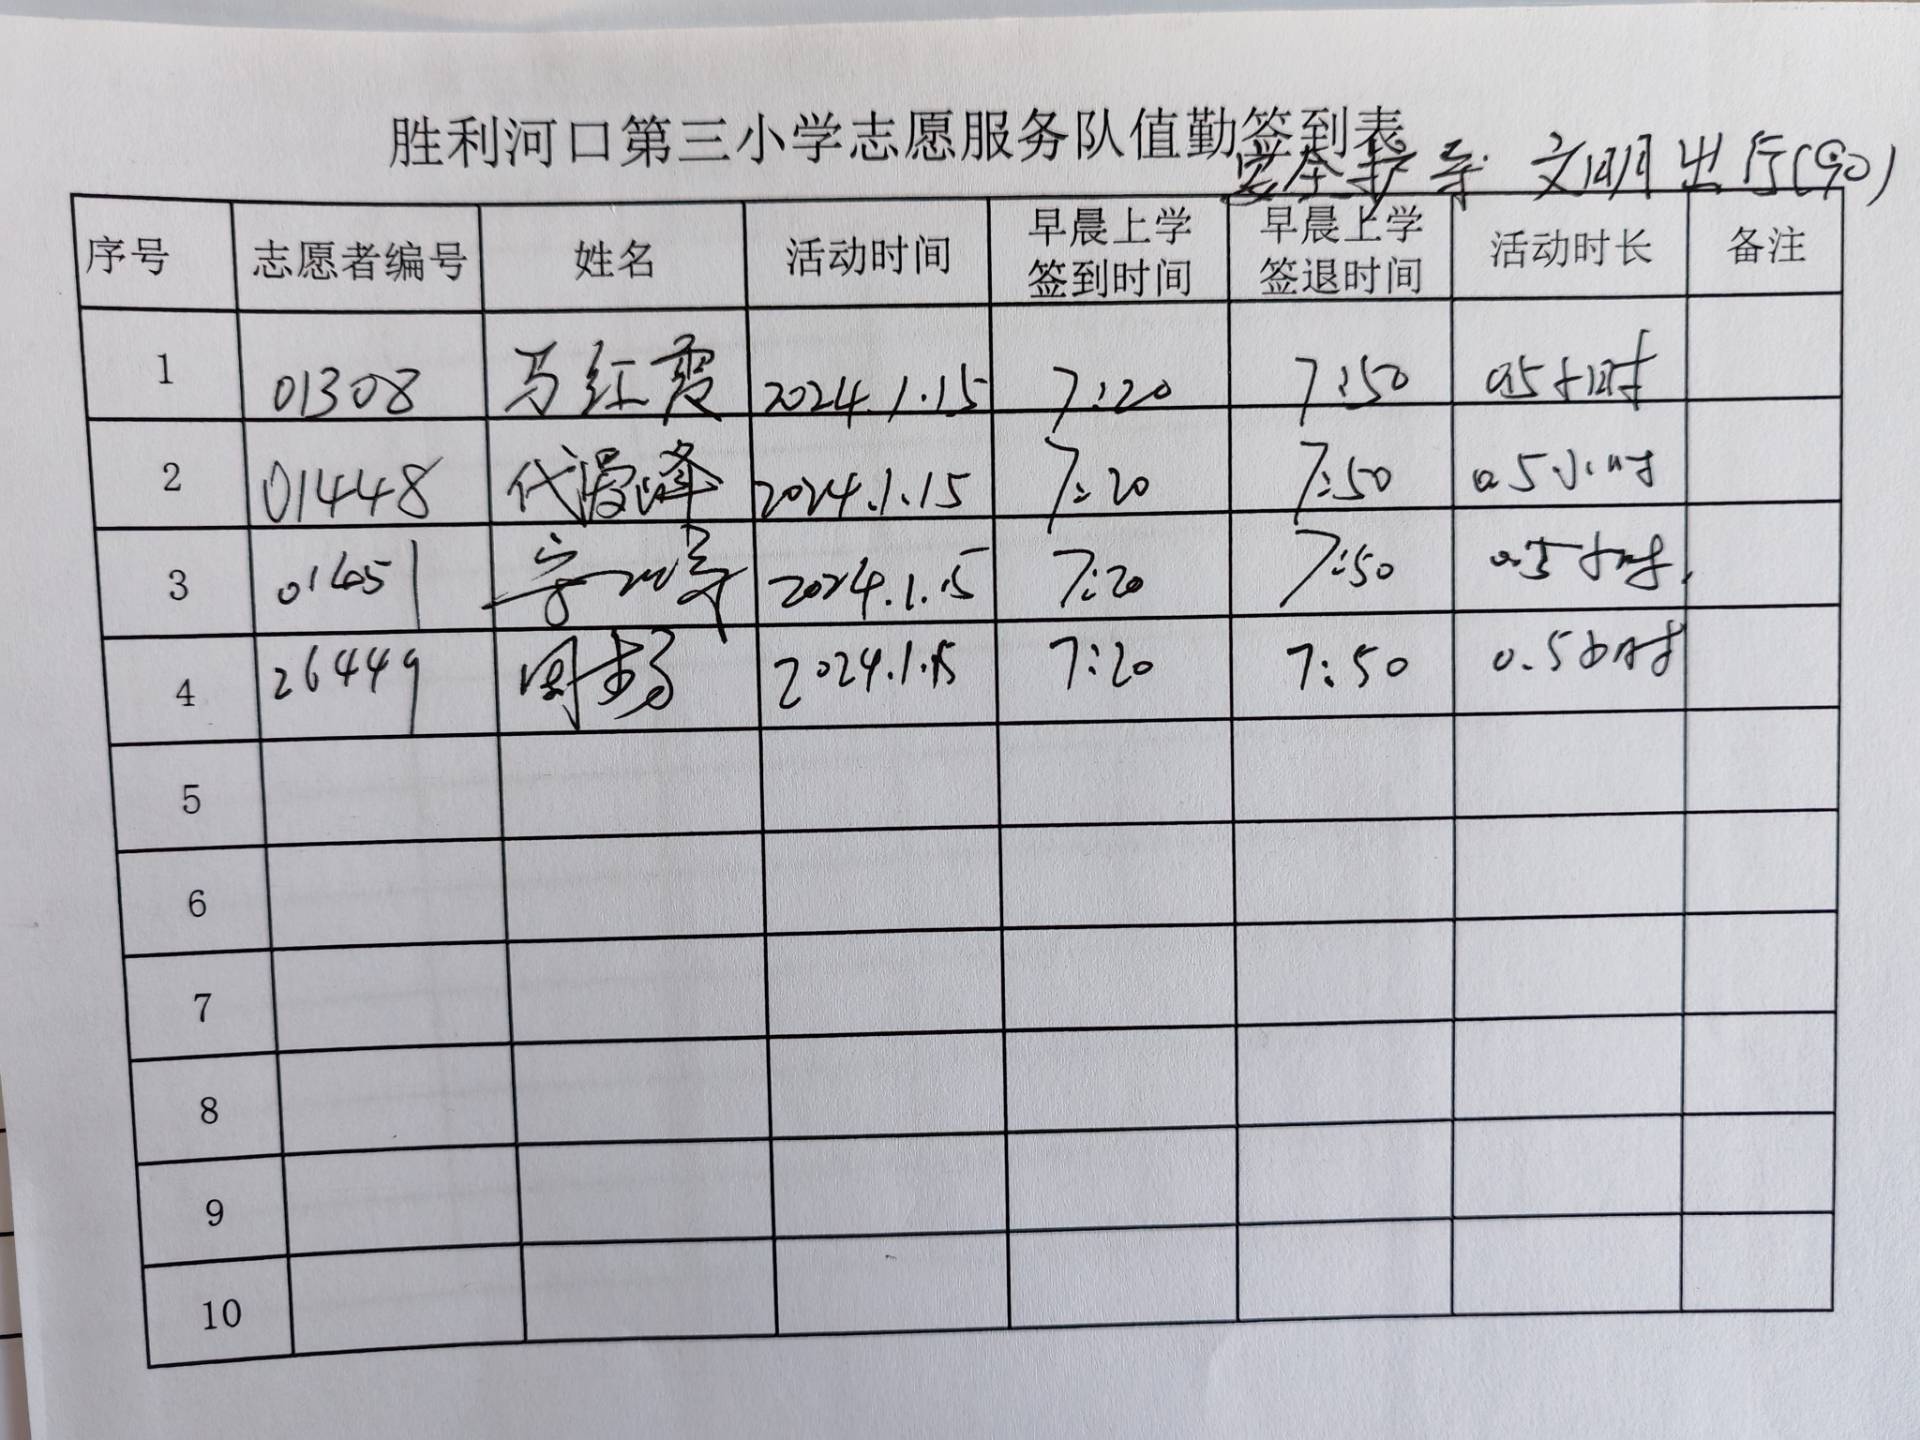 胜利河口第三小学志愿服务队值勤签到表
安全护导 文明出行(90)
序号 志愿者编号 姓名 活动时间 早晨上学签到时间 早晨上学签退时间 活动时长 备注
1 01308 马红霞 2024.1.15 7:20 7:50 0.5小时
2 01448 代漫峰 2024.1.15 7:20 7:50 0.5小时
3 01451 2024.1.15 7:20 7:50 0.5小时
4 26449 2024.1.15 7:20 7:50 0.5小时
5
6
7
8
9
10